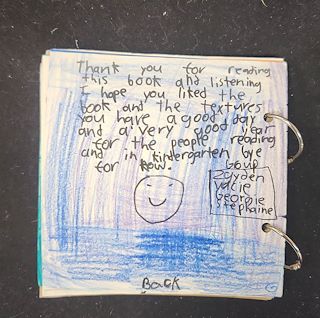 Thank you for reading
this book and listening
I hope you liked the
book and the textures
you have a good day
and a very good year
for the people reading
and in kindergarten bye
for now.
Zayden
Georgie
Stephaine
Back